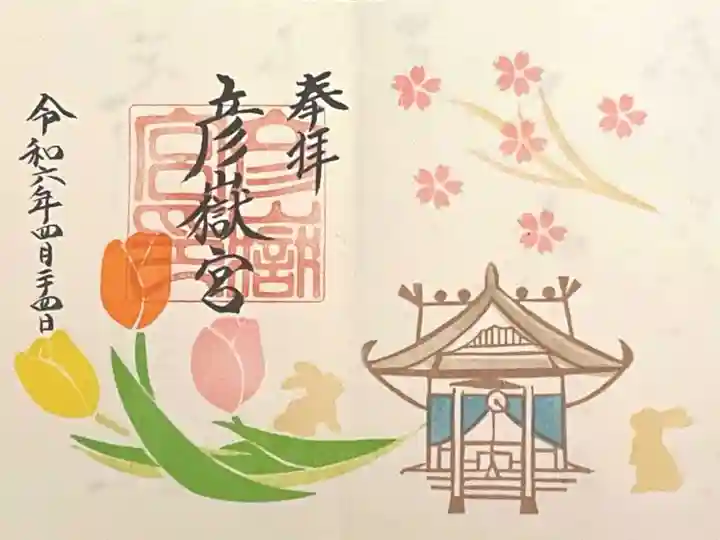 奉拝
彦嶽宮
令和六年四月二十四日